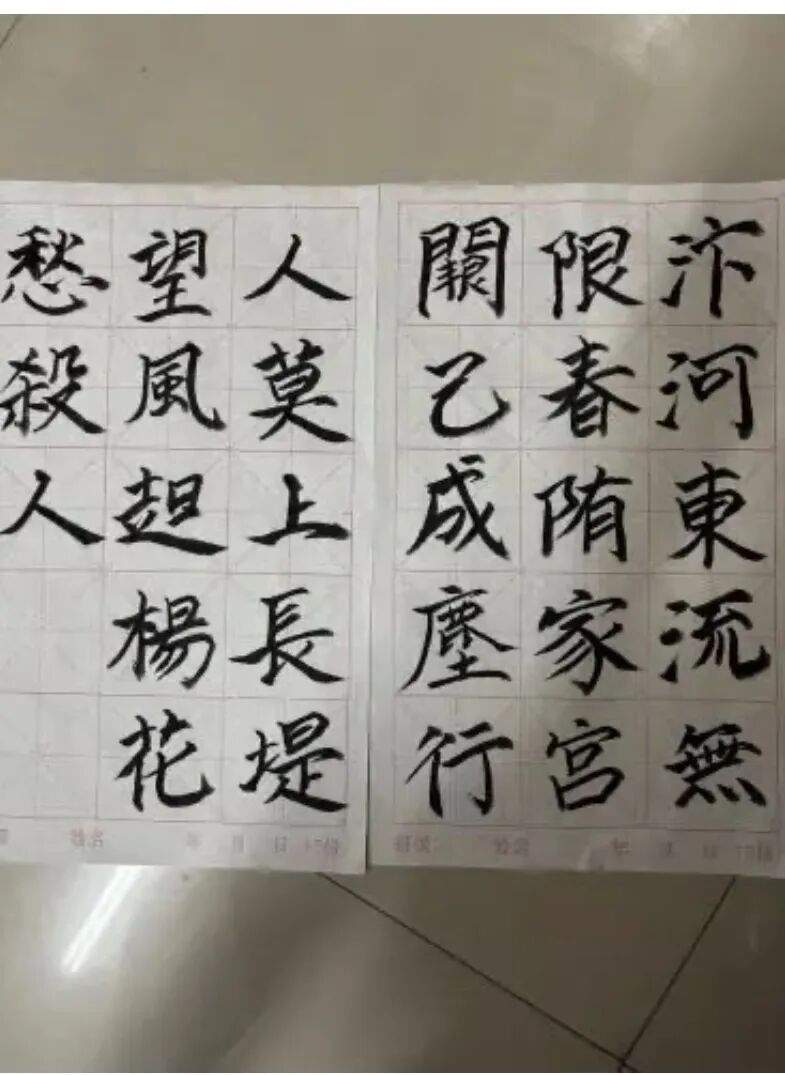 汴河東流無
限春陏家宫
闕已成塵行
人莫上長堤
望風起楊花
愁殺人
姓名 年 月 日